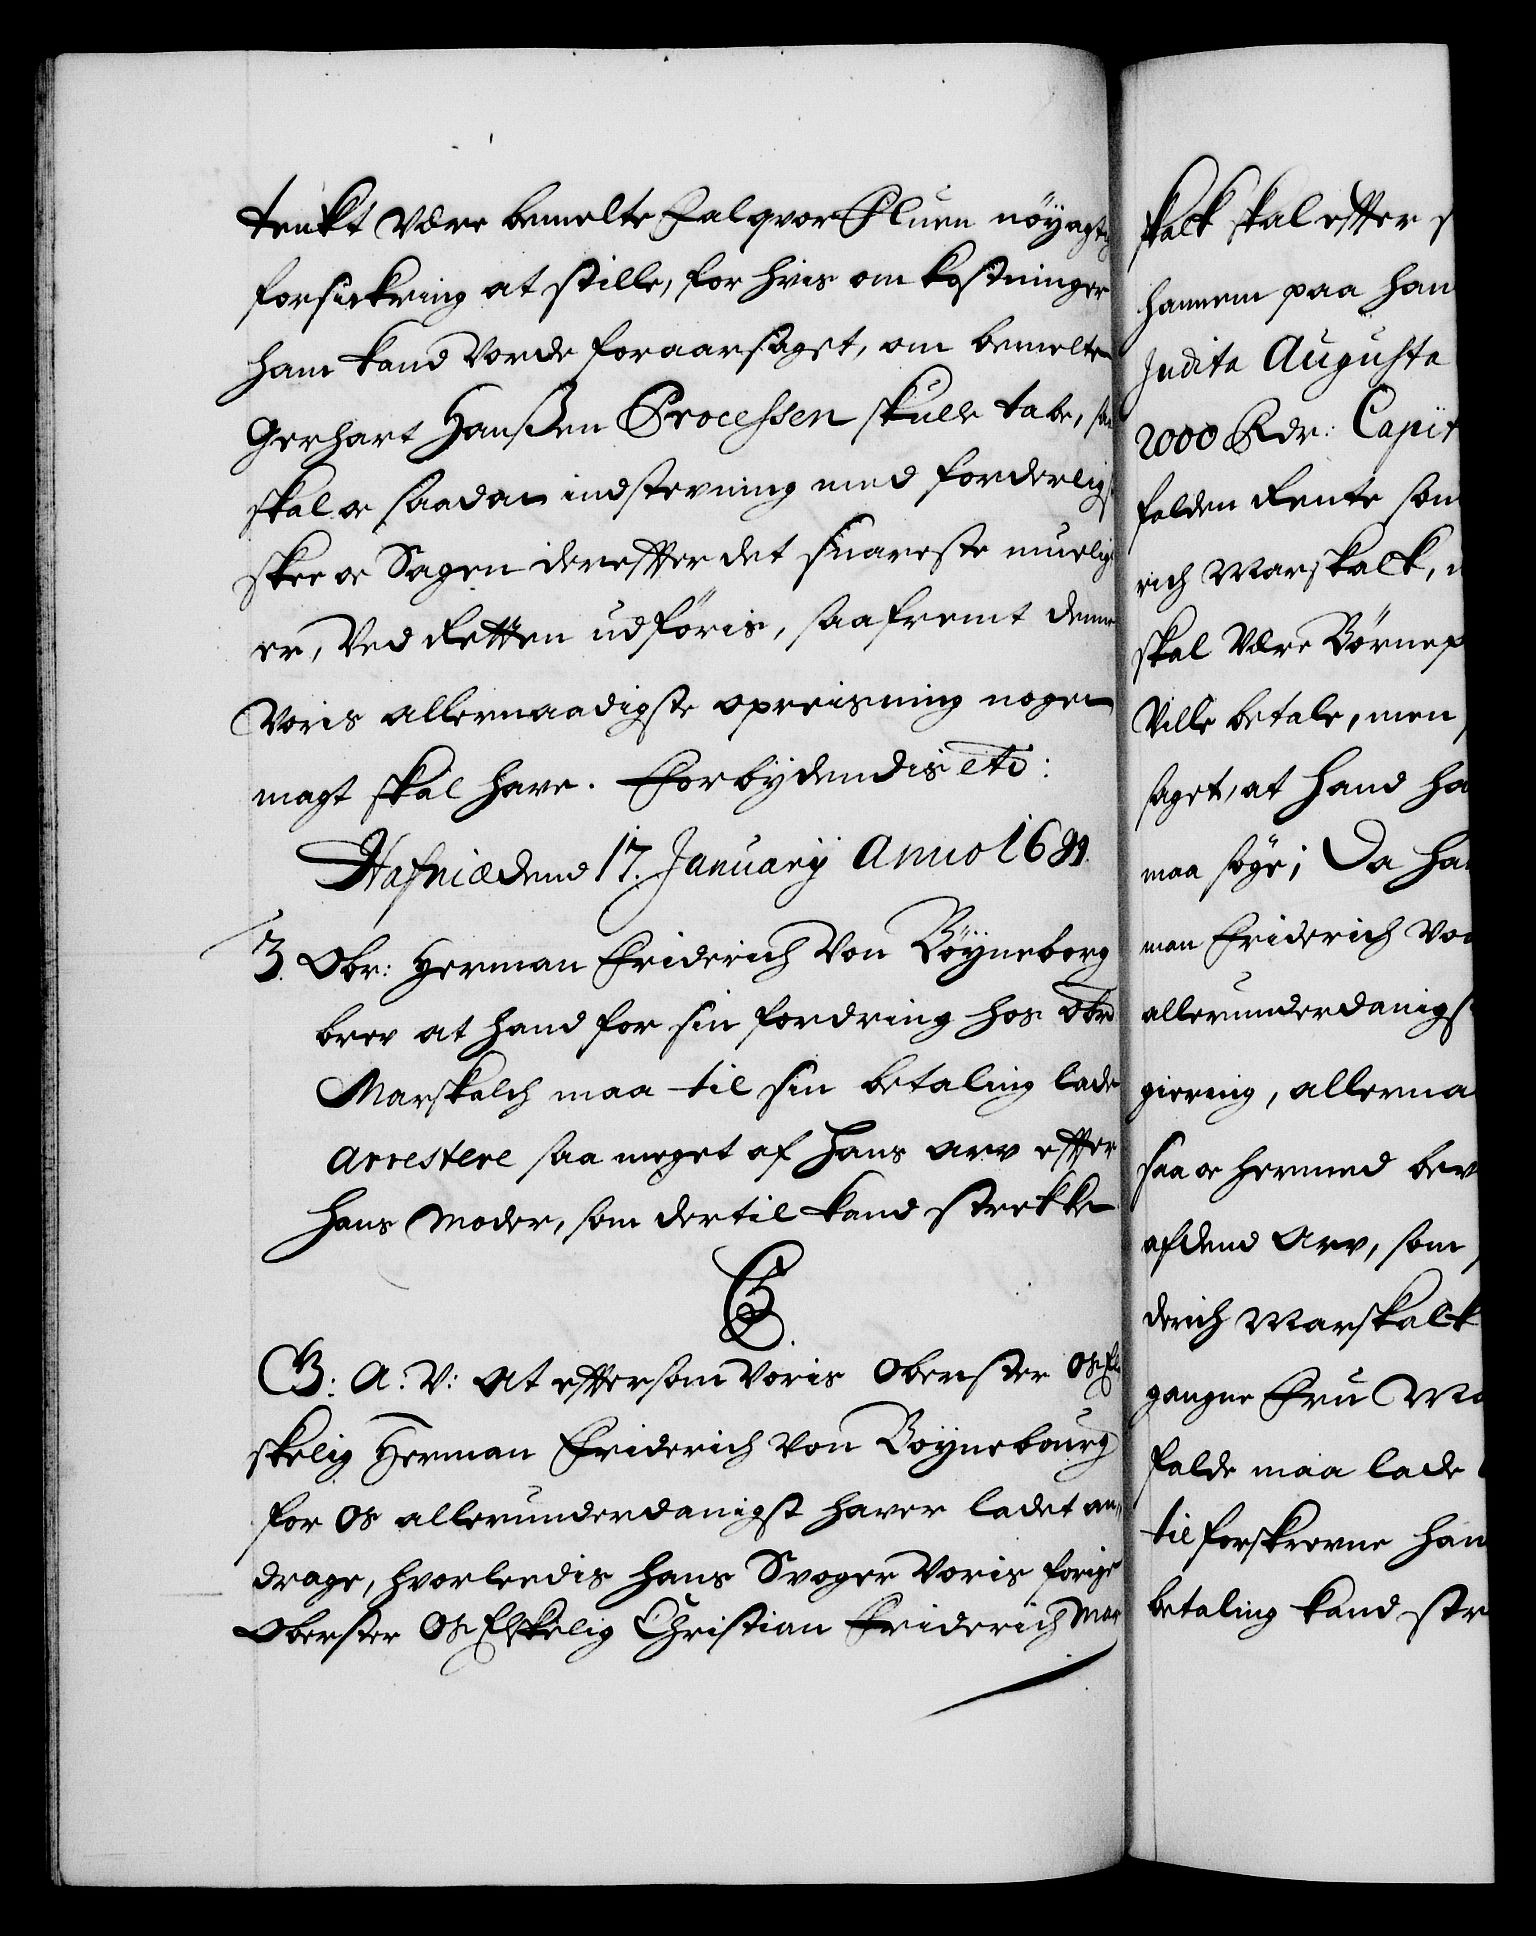 tenkt være bemelte Falqvor Pluen nöyagtig
forsickring at stille, for hvis omkostninger
ham kand vorde foraarsaget, om bemelte
Gerhart Hanßen Processen skulle tabe, saa
skal oc saadan indstevning med forderligst
skee oc Sagen derefter det snareste muelig
er, ved Retten udföris, saafremt denne
Voris allernaadigste opreisning nogen
magt skal have. Forbydendis etc:
Hafniæ dend 17. January Anno 1681.
3. Obr: Herman Friderich von Böyneborg
brev at hand for sin fordring hos Obr
Marskalch maa til sin betaling lade
Arrestere saa meget af hans arv efter
hans Moder, som dertil kand strekke
C5.
G: A: V: At eftersom Voris Oberster Os El
skelig Herman Friderich von Boynebourg
for Os allerunderdanigst haver ladet an-
drage, hvorledis hans Svoger Voris forige
Oberster Os Elskelig Christian Friderich Mar
skalk skal efter
hannem paa han
Judita Augusta
2000 Rdr: Capit
falden Rente som
rich Marskalk,
skal være Börnep
Ville betale, men
saget, at hand ha
maa söge; Da ha
man Friderich von
allerunderdanigst
giering, allerna
saa oc hermed bev
af dend Arv, som
derich Marskalk
gangne Fru Ma
falde maa lade
til forskrevne han
betaling kand str